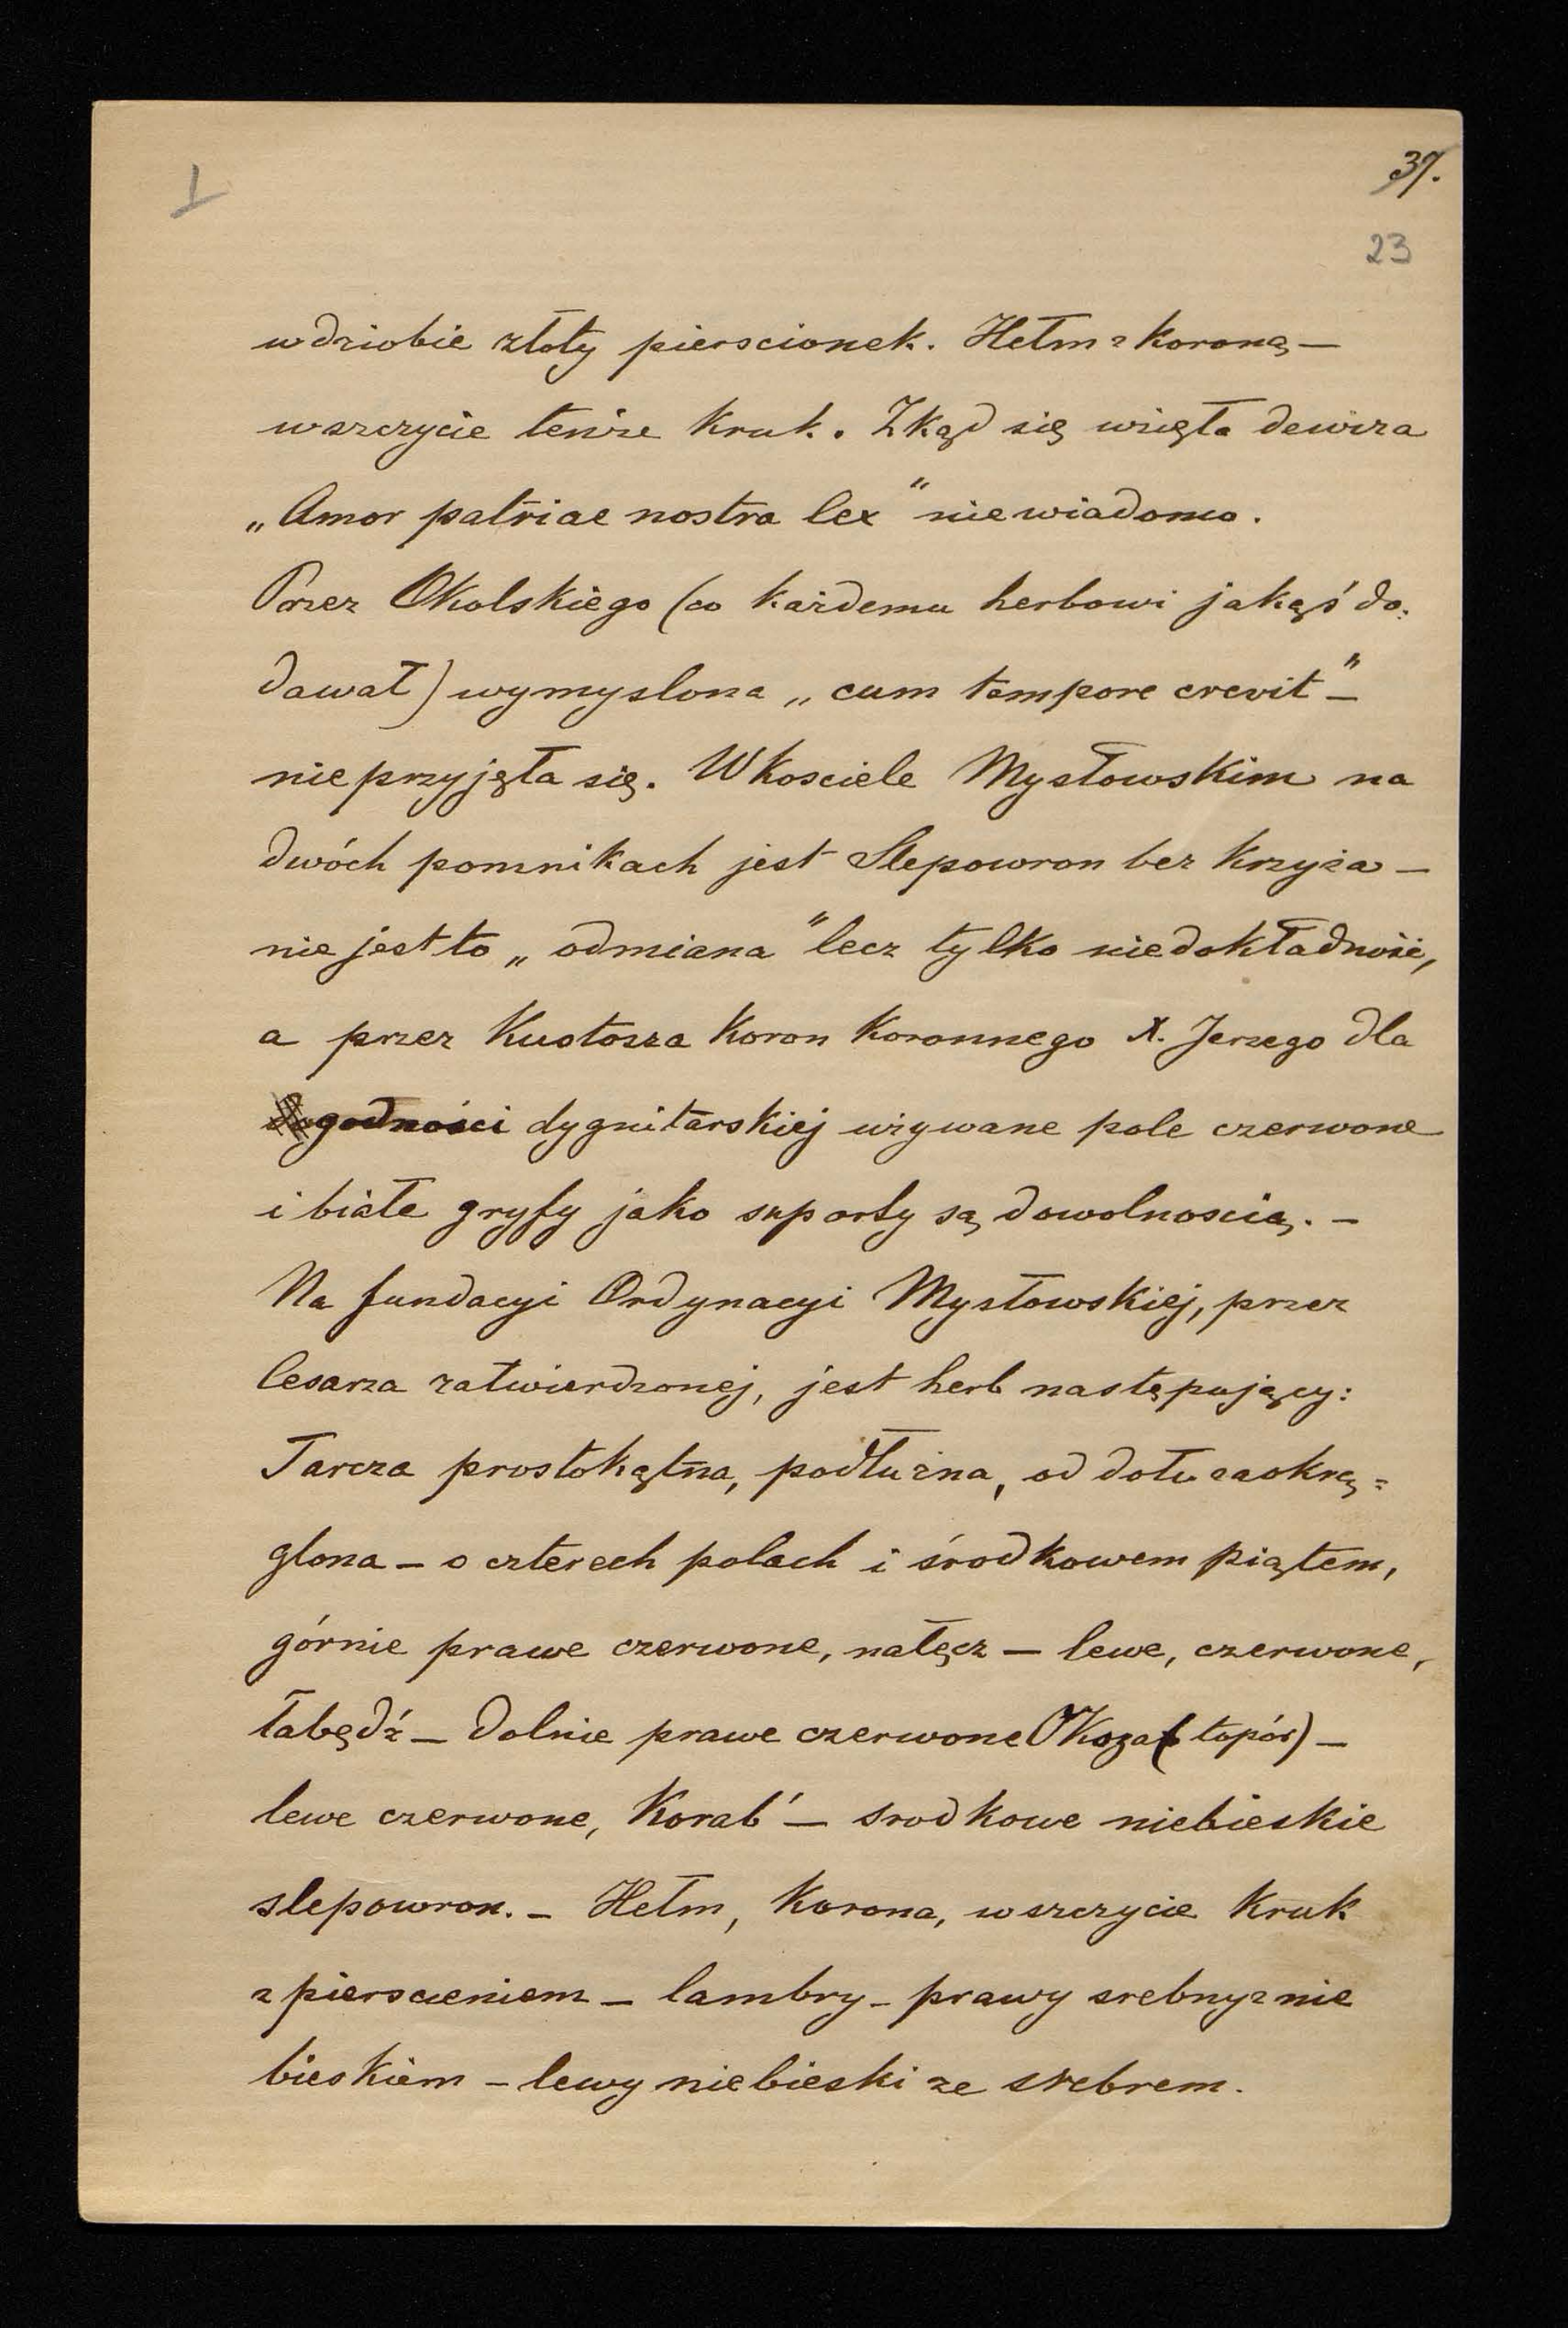 I
37.
23
w dziobie złoty pierscionek. Hełm z koroną —
w szczycie tenże kruk. Zkąd się wzięła dewiza
„Amor patriae nostra lex" niewiadomo.
Przez Okolskiego (co każdemu herbowi jakąś do-
dawał) wymyslona „cum tempore crevit" —
nieprzyjęła się. W kosciele Mysłowskim na
dwóch pomnikach jest Slepowron bez krzyża —
nie jest to „odmiana" lecz tylko niedokładność,
a przez Kustosza Koron Koronnego X. Jerzego dla
godności dygnitarskiej używane pole czerwone
i białe gryfy jako suporty są dowolnoscią. —
Na fundacyi Ordynacyi Mysłowskiej, przez
Cesarza zatwierdzonej, jest herb następujący:
Tarcza prostokątna, podłużna, od dołu zaokrą=
glona — o czterech polach i środkowem piątem,
górnie prawe czerwone, nałęcz — lewe, czerwone,
łabędź — dolnie prawe czerwone Oksza (topór) —
lewe czerwone, Korab' — srodkowe niebieskie
slepowron. — Hełm, Korona, w szczycie Kruk
z pierscieniem — lambry — prawy srebny z nie
bieskiem — lewy niebieski ze srebrem.